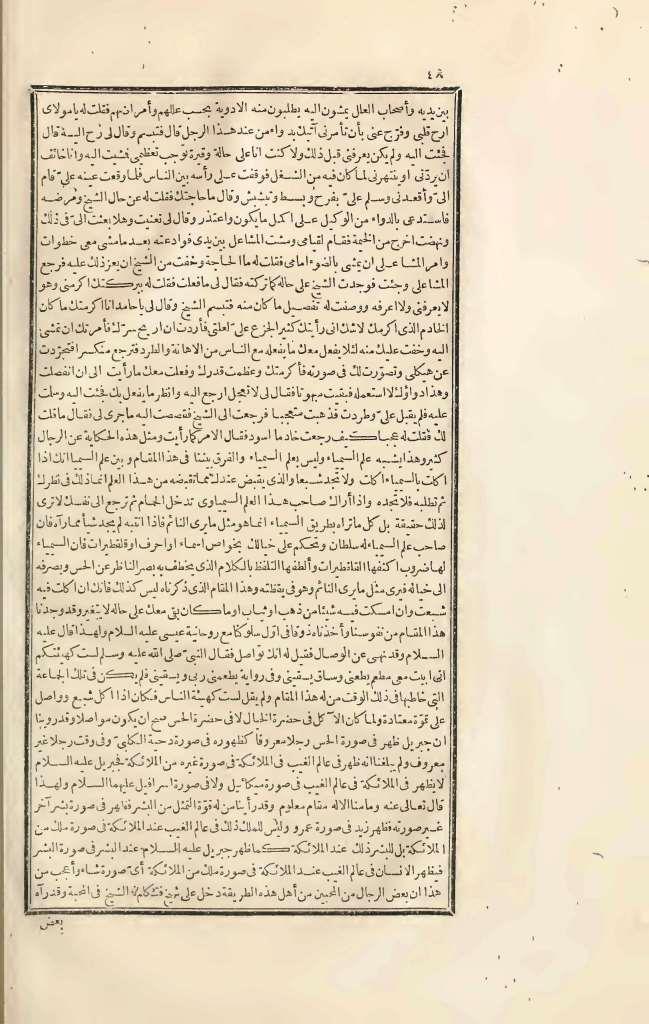 ٤٨
بين يديه وأصحاب العلل يمشون اليه يطلبون منه الادوية بحسب عللهم وأمراضهم فقلت له يا مولاى
ارح قلبى وفرج عنى بأن تأمرنى آتيك بدواء من عند هذا الرجل قال فتبسم وقال لى رح اليه قال
فجئت اليه ولم يكن يعرفنى قبل ذلك ولا كنت أنا على حالة وقبرة توجب تعظيمى فمشيت اليه وانا خائف
ان يردنى او ينتهرنى لما كان فيه من الشغل فوقفت على رأسه بين الناس فلما وقعت عينه على قام
الى وأقعدنى وسلم على بفرح وبسط وتبشبش وقال ما حاجتك فقلت له عن حال الشيخ ومرضه
فاستدعى بالدواء من الوكيل على اكمل ما يكون واعتذر وقال لى تعنيت وهلا بعثت الى فى ذلك
ونهضت اخرج من الخيمة فقام لقيامى ومشت المشاعل بين يدى فوادعته بعد ما مشى معى خطوات
وامر المشاعلى ان يمشى بالضوء امامى فقلت له ما الحاجة وخفت من الشيخ ان يعز ذلك عليه فرجع
المشاعلى وجئت فوجدت الشيخ على حاله كما تركته فقال لى ما فعلت فقلت له ببركتك اكرمنى وهو
لا يعرفنى ولا اعرفه ووصفت له تفصيل ما كان منه فتبسم الشيخ وقال لى يا حامد انا اكرمتك ما كان
الخادم الذى اكرمك لا شك انى رأيتك كثير الجزع على لعلتى فأردت ان اريح سرك فأمرتك ان تمشى
اليه وخفت عليك منه لئلا يفعل معك ما يفعله مع الناس من الاهانة والطرد فترجع منكسرا فتجردت
عن هيكلى وتصورت لك فى صورته فأكرمتك وعظمت قدرك وفعلت معك ما رأيت الى ان انفصلت
وهذا دواؤك لا استعمله فبقيت مبهوتا فقال لى لا تعجل ارجع اليه وانظر ما يفعل بك فجئت اليه وسلمت
عليه فلم يقبل على وطردت فذهبت متعجبا فرجعت الى الشيخ فقصصت اليه ما جرى لى فقال ما قلت
لك فقلت له عجبا كيف رجعت خادما اسود فقال الامر كما رأيت ومثل هذه الحكاية عن الرجال
كثير وهذا يشبه علم السيمياء وليس بعلم السيمياء والفرق بيننا فى هذا المقام وبين علم السيميا انك اذا
اكلت بالسيمياء اكلت ولا تجد شبعا والذى يقبض عندك مما تقبضه من هذا العلم انما ذلك فى نظرك
ثم تطلبه فلا تجده واذا اراك صاحب هذا العلم السيمياوى تدخل الحمام ثم ترجع الى نفسك لا ترى
لذلك حقيقة بل كل ما تراه بطريق السيمياء انما هو مثل ما يرى النائم فاذا انتبه لم يجد شيأ مما رآه فان
صاحب علم السيمياء له سلطان وتحكم على خيالك بخواص اسماء او احرف او قلفطيرات فان السيمياء
لها ضروب اكثفها القلفطيرات وألطفها التلفظ بالكلام الذى يخطف به بصر الناظر عن الحس ويصرفه
الى خياله فيرى مثل ما يرى النائم وهو فى يقظته وهذا المقام الذى ذكرناه ليس كذلك فانك ان اكلت فيه
شبعت وان امسكت فيه شيئا من ذهب او ثياب او ما كان بقى معك على حاله لا يتغير وقد وجدنا
هذا المقام من نفوسنا وأخذناه ذوقا فى اول سلوكنا مع روحانية عيسى عليه السلام ولهذا قال عليه
السلام وقد نهى عن الوصال فقيل له انك تواصل فقال النبى صلى الله عليه وسلم لست كهيئتكم
انى ابيت معى مطعم يطعمنى وساق يسقينى وفى رواية يطعمنى ربى ويسقينى فلم يكن فى تلك الجماعة
التى خاطبها فى ذلك الوقت من له هذا المقام ولم يقل لست كهيئة الناس فكان اذا اكل شبع وواصل
على قوة معتادة ولما كان الآكل فى حضرة الخيال لا فى حضرة الحس صح ان يكون مواصلا وقد روينا
ان جبريل ظهر فى صورة الحس رجلا معروفا كظهوره فى صورة دحية الكلبى وفى وقت رجلا غير
معروف ولم يبلغنا انه ظهر فى عالم الغيب فى الملائكة فى صورة غيره من الملائكة فجبريل عليه السلام
لا يظهر فى الملائكة فى عالم الغيب فى صورة ميكائيل ولا فى صورة اسرافيل عليهما السلام ولهذا
قال تعالى عنه وما منا الا له مقام معلوم وقد رأينا من له قوة التمثل من البشر فظهر فى صورة بشر آخر
غير صورته فظهر زيد فى صورة عمرو وليس للملك ذلك فى عالم الغيب عند الملائكة فى صورة ملك من
الملائكة بل للبشر ذلك عند الملائكة كما ظهر جبريل عليه السلام عند البشر فى صورة البشر
فيظهر الانسان فى عالم الغيب عند الملائكة فى صورة ملك من الملائكة أى صورة شاء وأعجب من
هذا ان بعض الرجال من المحبين من أهل هذه الطريقة دخل على شيخ فتكلم له الشيخ فى المحبة وقد رآه
بعض